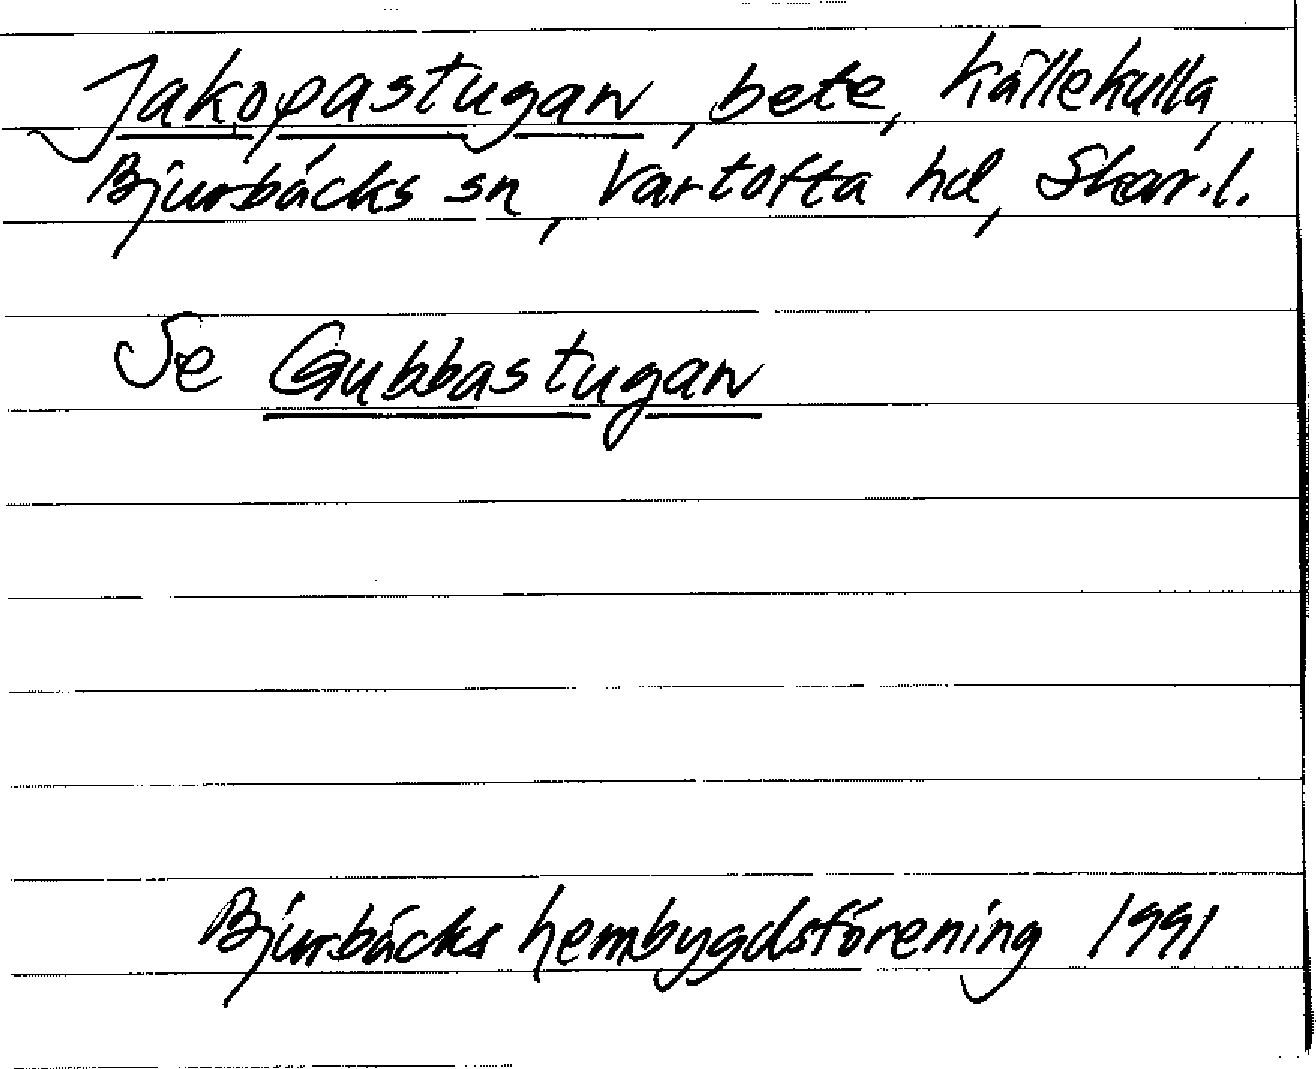 Jakopastugan, bete, Källekulla,
Bjurbäcks sn, Vartofta hd, Skar.l.
Se Gubbastugan
Bjurbäcks hembygdsförening 1991